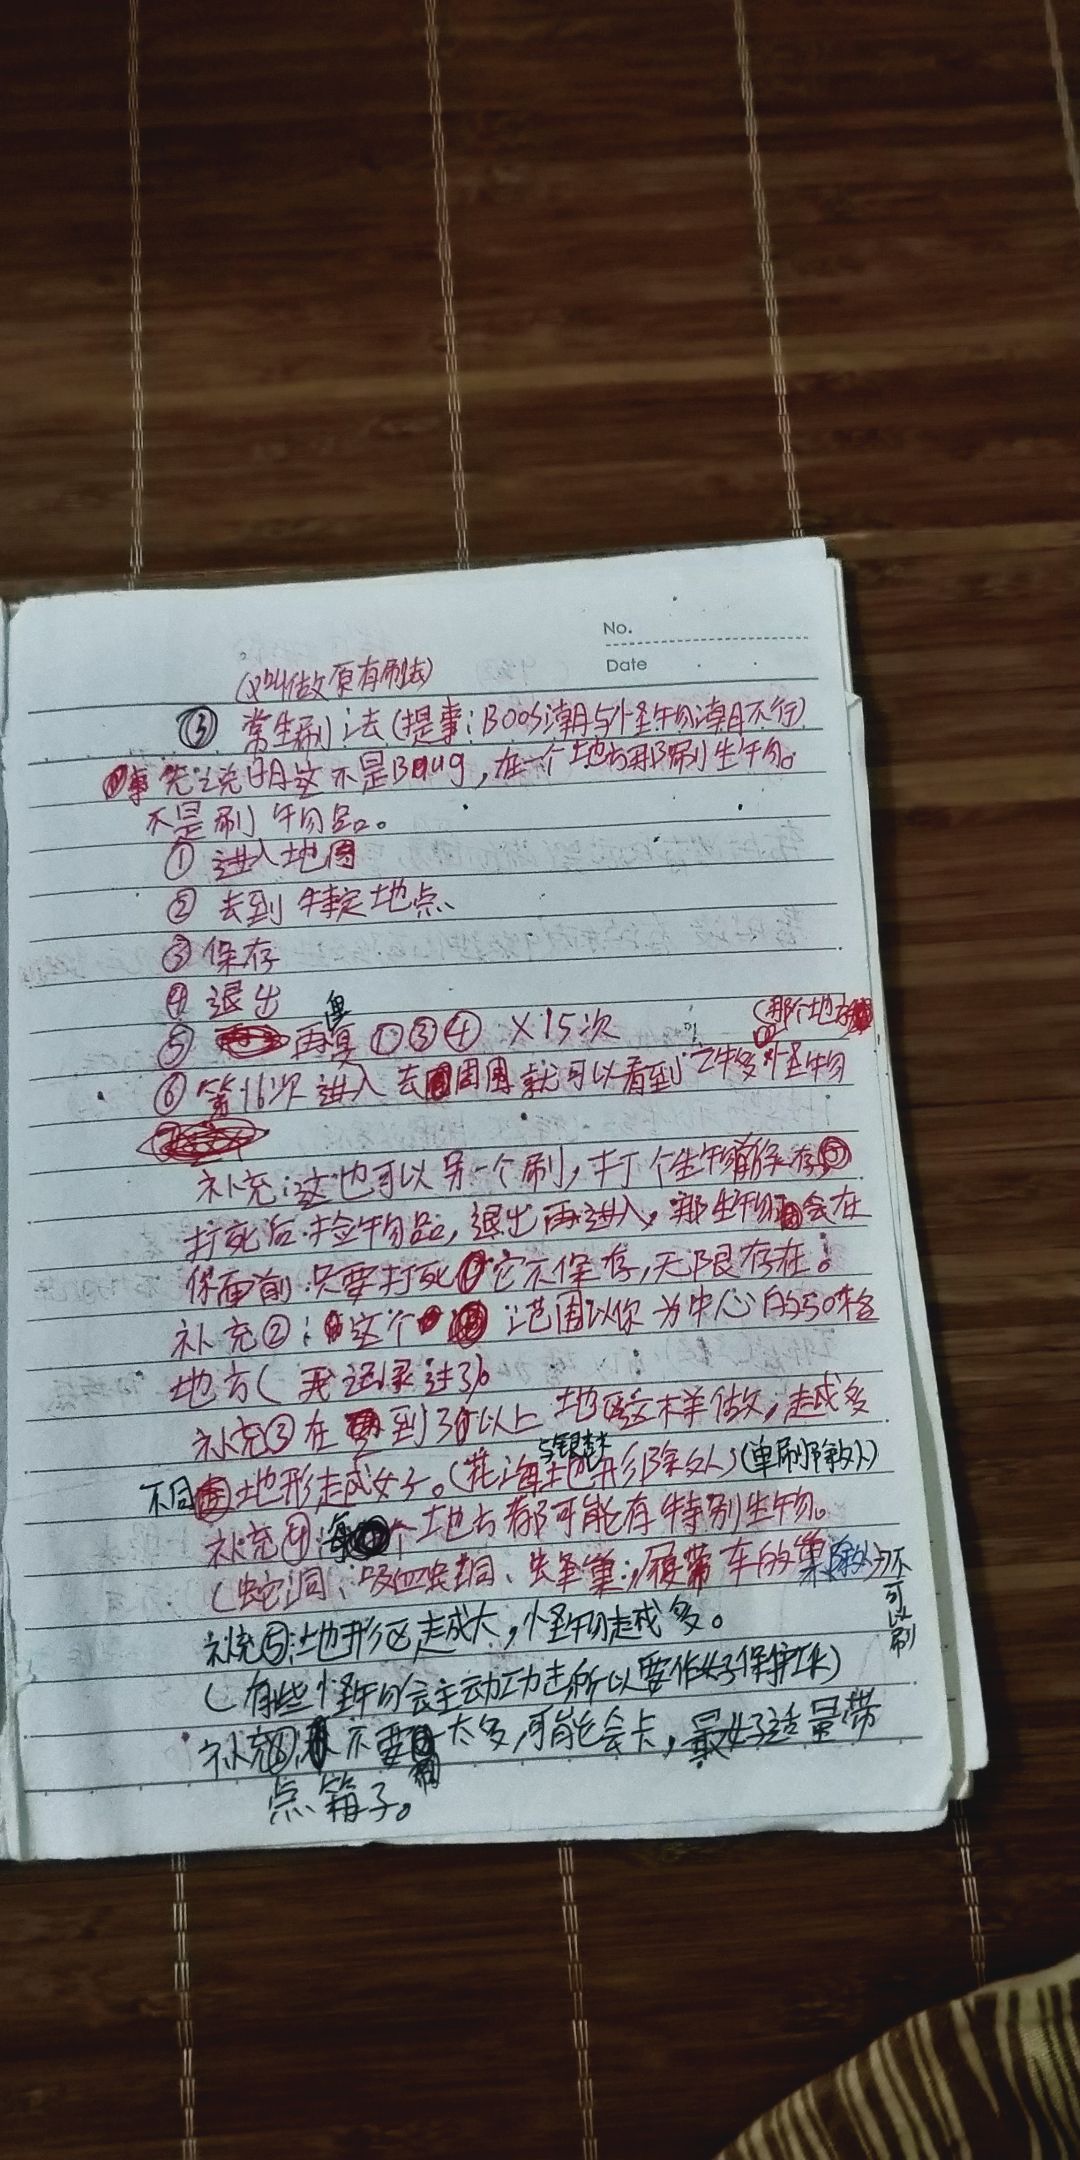 No.
Date
(又叫做原有刷法)
③ 常生刷法(提事:BOOS潮与怪物潮不行)
先说明这不是Baug,在一个地方那刷生物。
不是刷物品。
① 进入地图
② 去到特定地点
③ 保存
④ 退出
⑤ 再重复①③④ ×15次
(那个地方
⑥ 第16次进入去周围就可以看到怪物
补充:这也可以另一个刷,打个生物前保存
打死后捡物品,退出再进入,那生物会在
你面前.只要打死它不保存,无限存在!
补充②:这个范围以你为中心的50格
地方(我记录过36
补充③在到36以上地图这样做,越多
不同地形越好。(花海与银杏地形除外)(单刷除外)
补充④:每个地方都可能有特别生物。
(蛇洞、吸血虫洞、虫巢;履带车的巢除外)不可以刷
补充⑤:地形区越大,怪物越多。
(有些怪物会主动功击所以要作好保护工作)
补充⑥不要刷太多,可能会卡,最好适量带
点箱子。